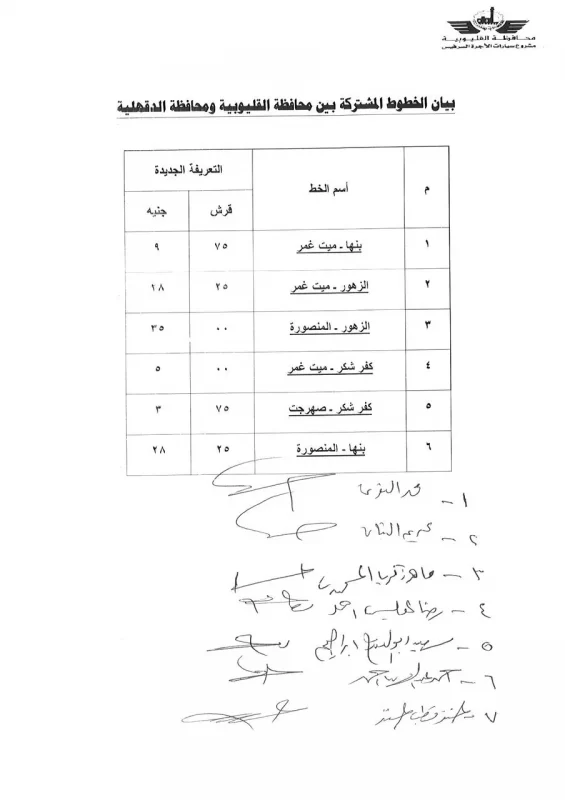 محافظة القليوبية
مشروع سيارات الأجرة السرفيس
بيان الخطوط المشتركة بين محافظة القليوبية ومحافظة الدقهلية
م أسم الخط التعريفة الجديدة
قرش جنيه
١ بنها - ميت غمر ٧٥ ٩
٢ الزهور - ميت غمر ٢٥ ١٨
٣ الزهور - المنصورة ٠٠ ٣٥
٤ كفر شكر - ميت غمر ٠٠ ٥
٥ كفر شكر - صهرجت ٧٥ ٣
٦ بنها - المنصورة ٢٥ ٢٨
١ -
٢ -
٣ - ماهر زكريا
٤ - رضا احمد
٥ - ابراهيم
٦ - احمد
٧